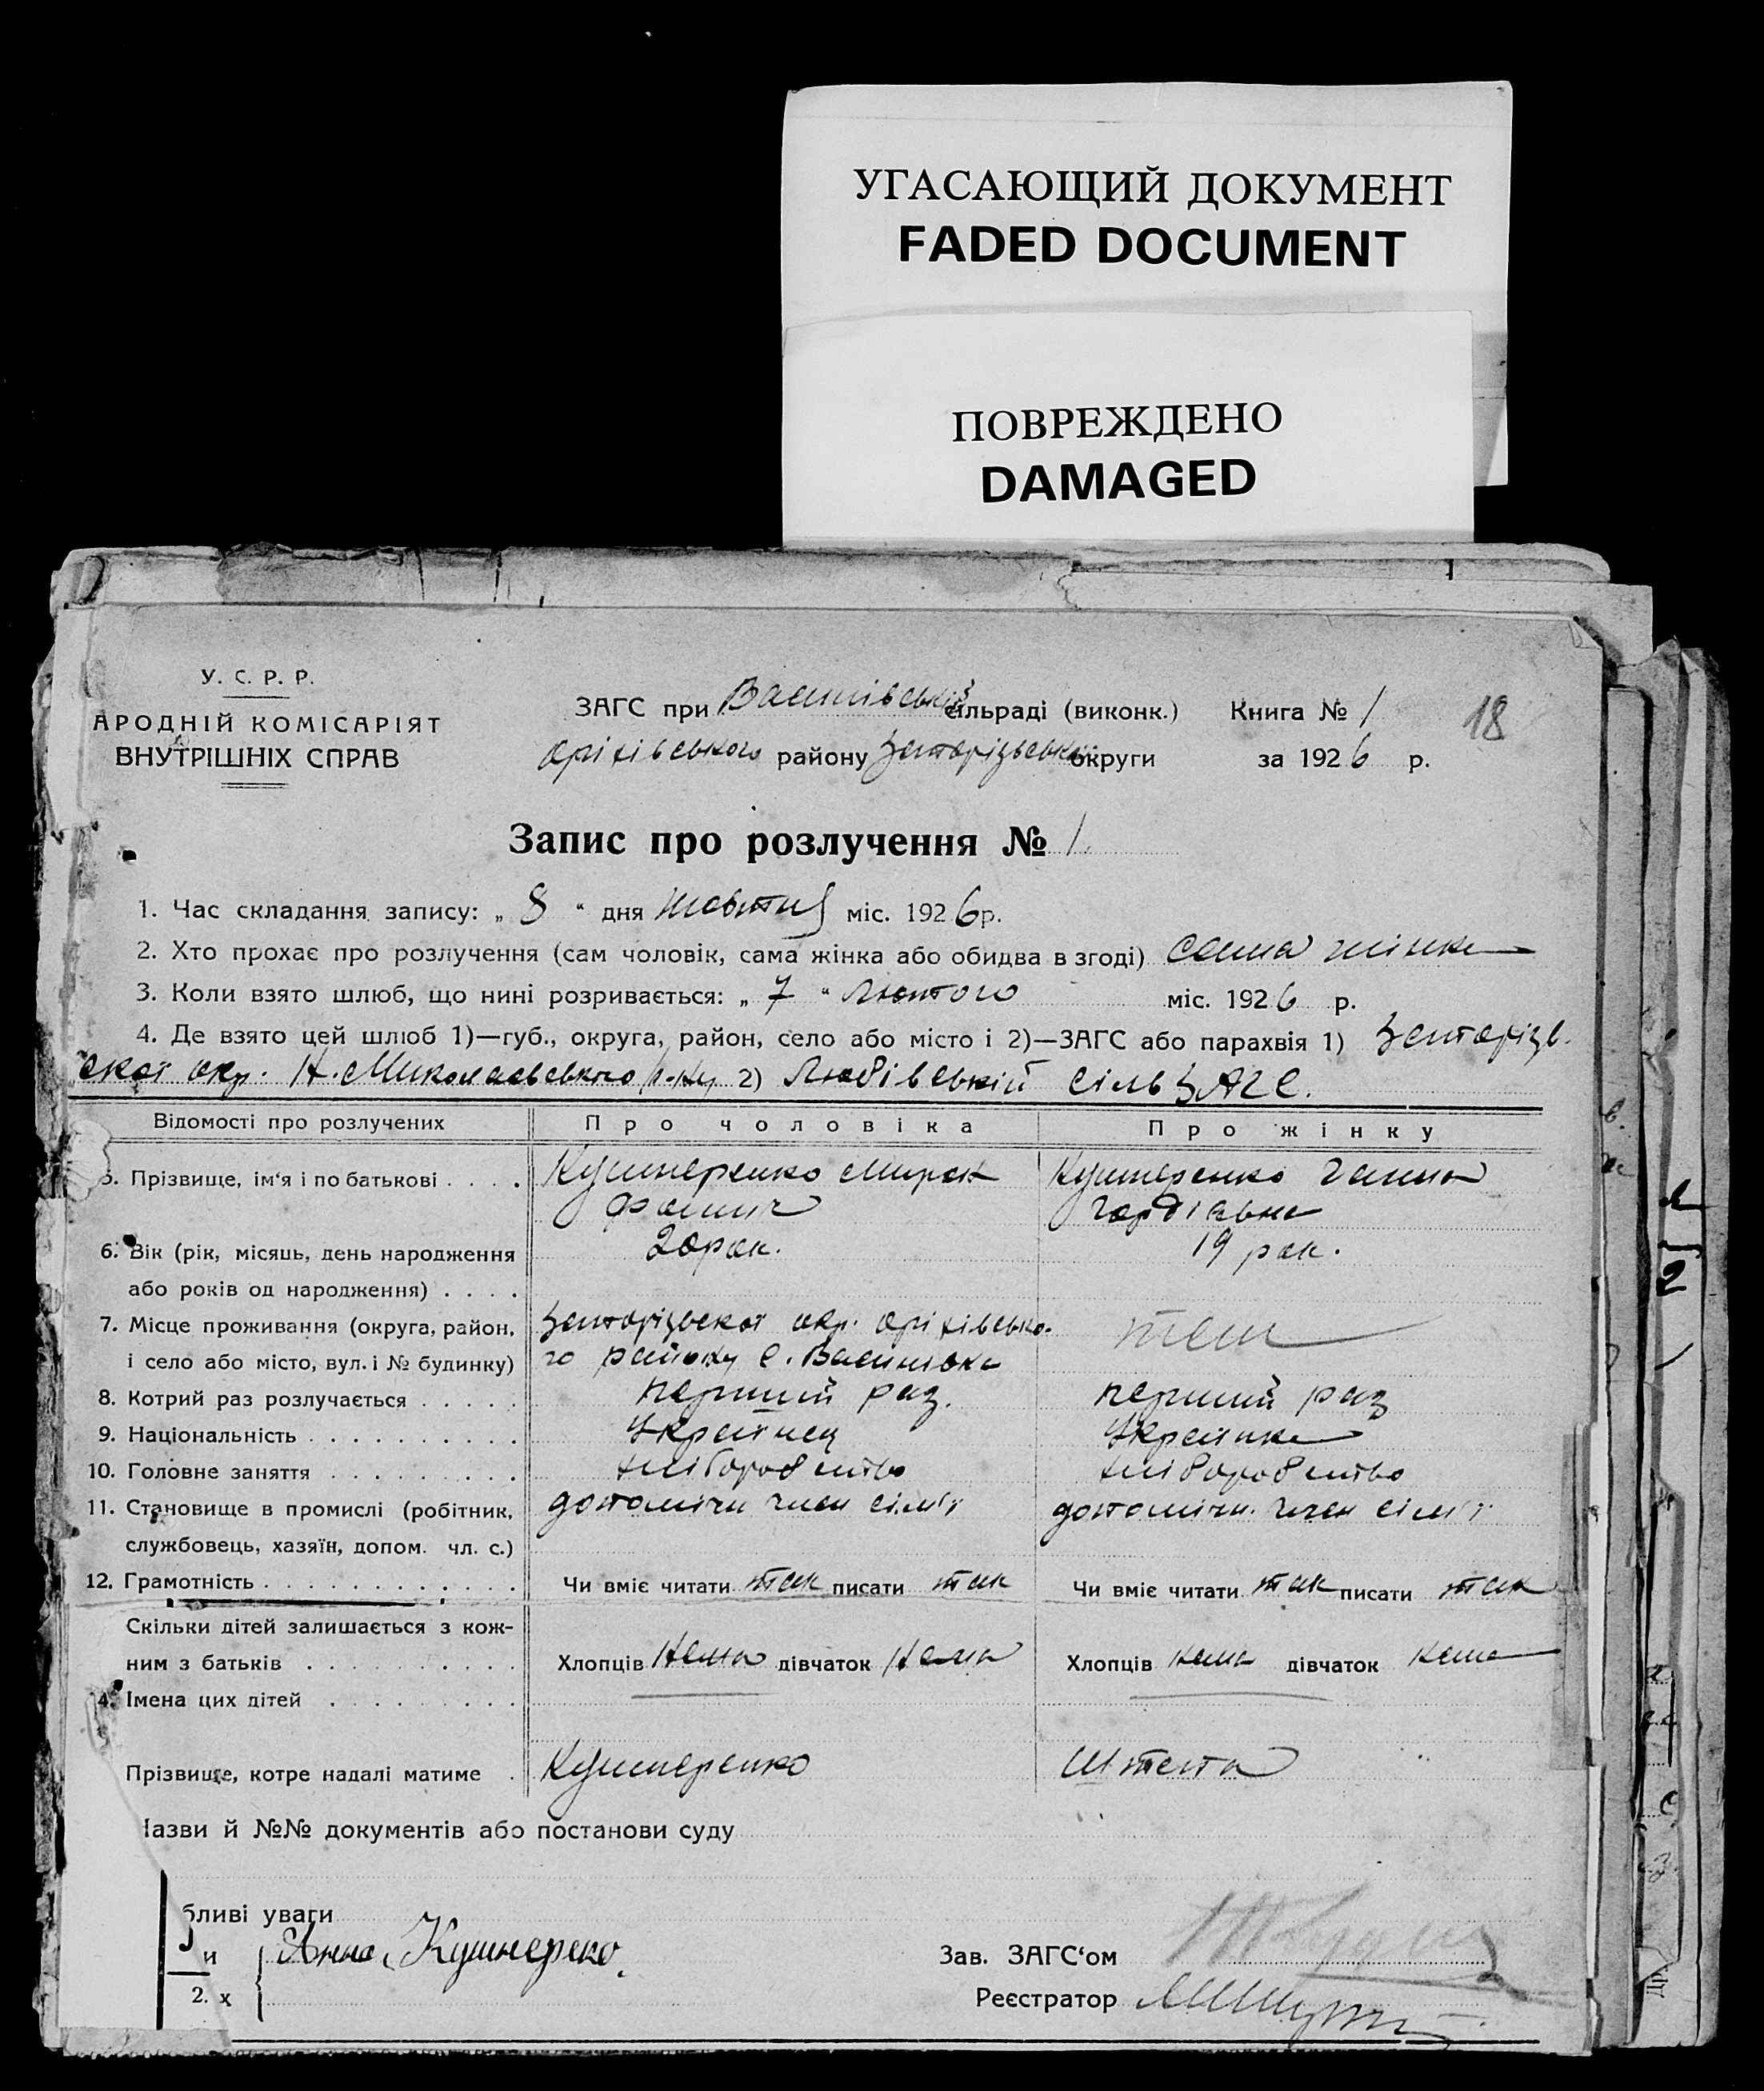 УГАСАЮЩИЙ ДОКУМЕНТ
FADED DOCUMENT
ПОВРЕЖДЕНО
DAMAGED
У. С. Р. Р.
АРОДНІЙ КОМІСАРІЯТ
ВНУТРІШНІХ СПРАВ
ЗАГС при Васинівській сільраді (виконк.) Книга № 1 18
Оріхівського району Запорізської округи за 1926 р.
Запис про розлучення № 1.
1. Час складання запису: „ 8 “ дня жовтня міс. 1926 р.
2. Хто прохає про розлучення (сам чоловік, сама жінка або обидва в згоді) сама жінка
3. Коли взято шлюб, що нині розривається: „ 7 “ Лютого міс. 1926 р.
4. Де взято цей шлюб 1)—губ., округа, район, село або місто і 2)—ЗАГС або парахвія 1) Запорізь.
ской окр. Н. Миколаєвського р-ну 2) Любівський сільЗАГС.
Відомості про розлучених Про чоловіка Про жінку
5. Прізвище, ім‘я і по батькові . . . . Кушнеренко Мирон Кушнеренко Ганна
Фомич Гордіевна
6. Вік (рік, місяць, день народження 20 рок. 19 рок.
або років од народження) . . . .
7. Місце проживання (округа, район, Запорізьскої окр. Оріхівсько- теж
і село або місто, вул. і № будинку) го району с. Васинівка
8. Котрий раз розлучається . . . . . перший раз. перший раз
9. Національність . . . . . . . . . . Українец Українка
10. Головне заняття . . . . . . . . . хліборобство хліборобство
11. Становище в промислі (робітник, допомічн член сім'ї допомічн. член сім'ї
службовець, хазяїн, допом. чл. с.)
12. Грамотність . . . . . . . . . . . . Чи вміє читати так писати так Чи вміє читати так писати так
Скільки дітей залишається з кож-
ним з батьків . . . . . . . . . . Хлопців Нема дівчаток Нема Хлопців нема дівчаток нема
4. Імена цих дітей . . . . . . . . .
Прізвище, котре надалі матиме . Кушнеренко Штепа
азви й №№ документів або постанови суду
бливі уваги
и Анна Кушнеренко.
Зав. ЗАГС‘ом
2. х
Реєстратор